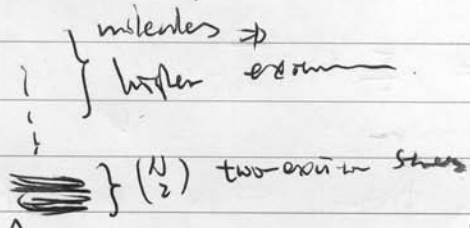 molecules ⇒
higher
(N 2) two-exciton states